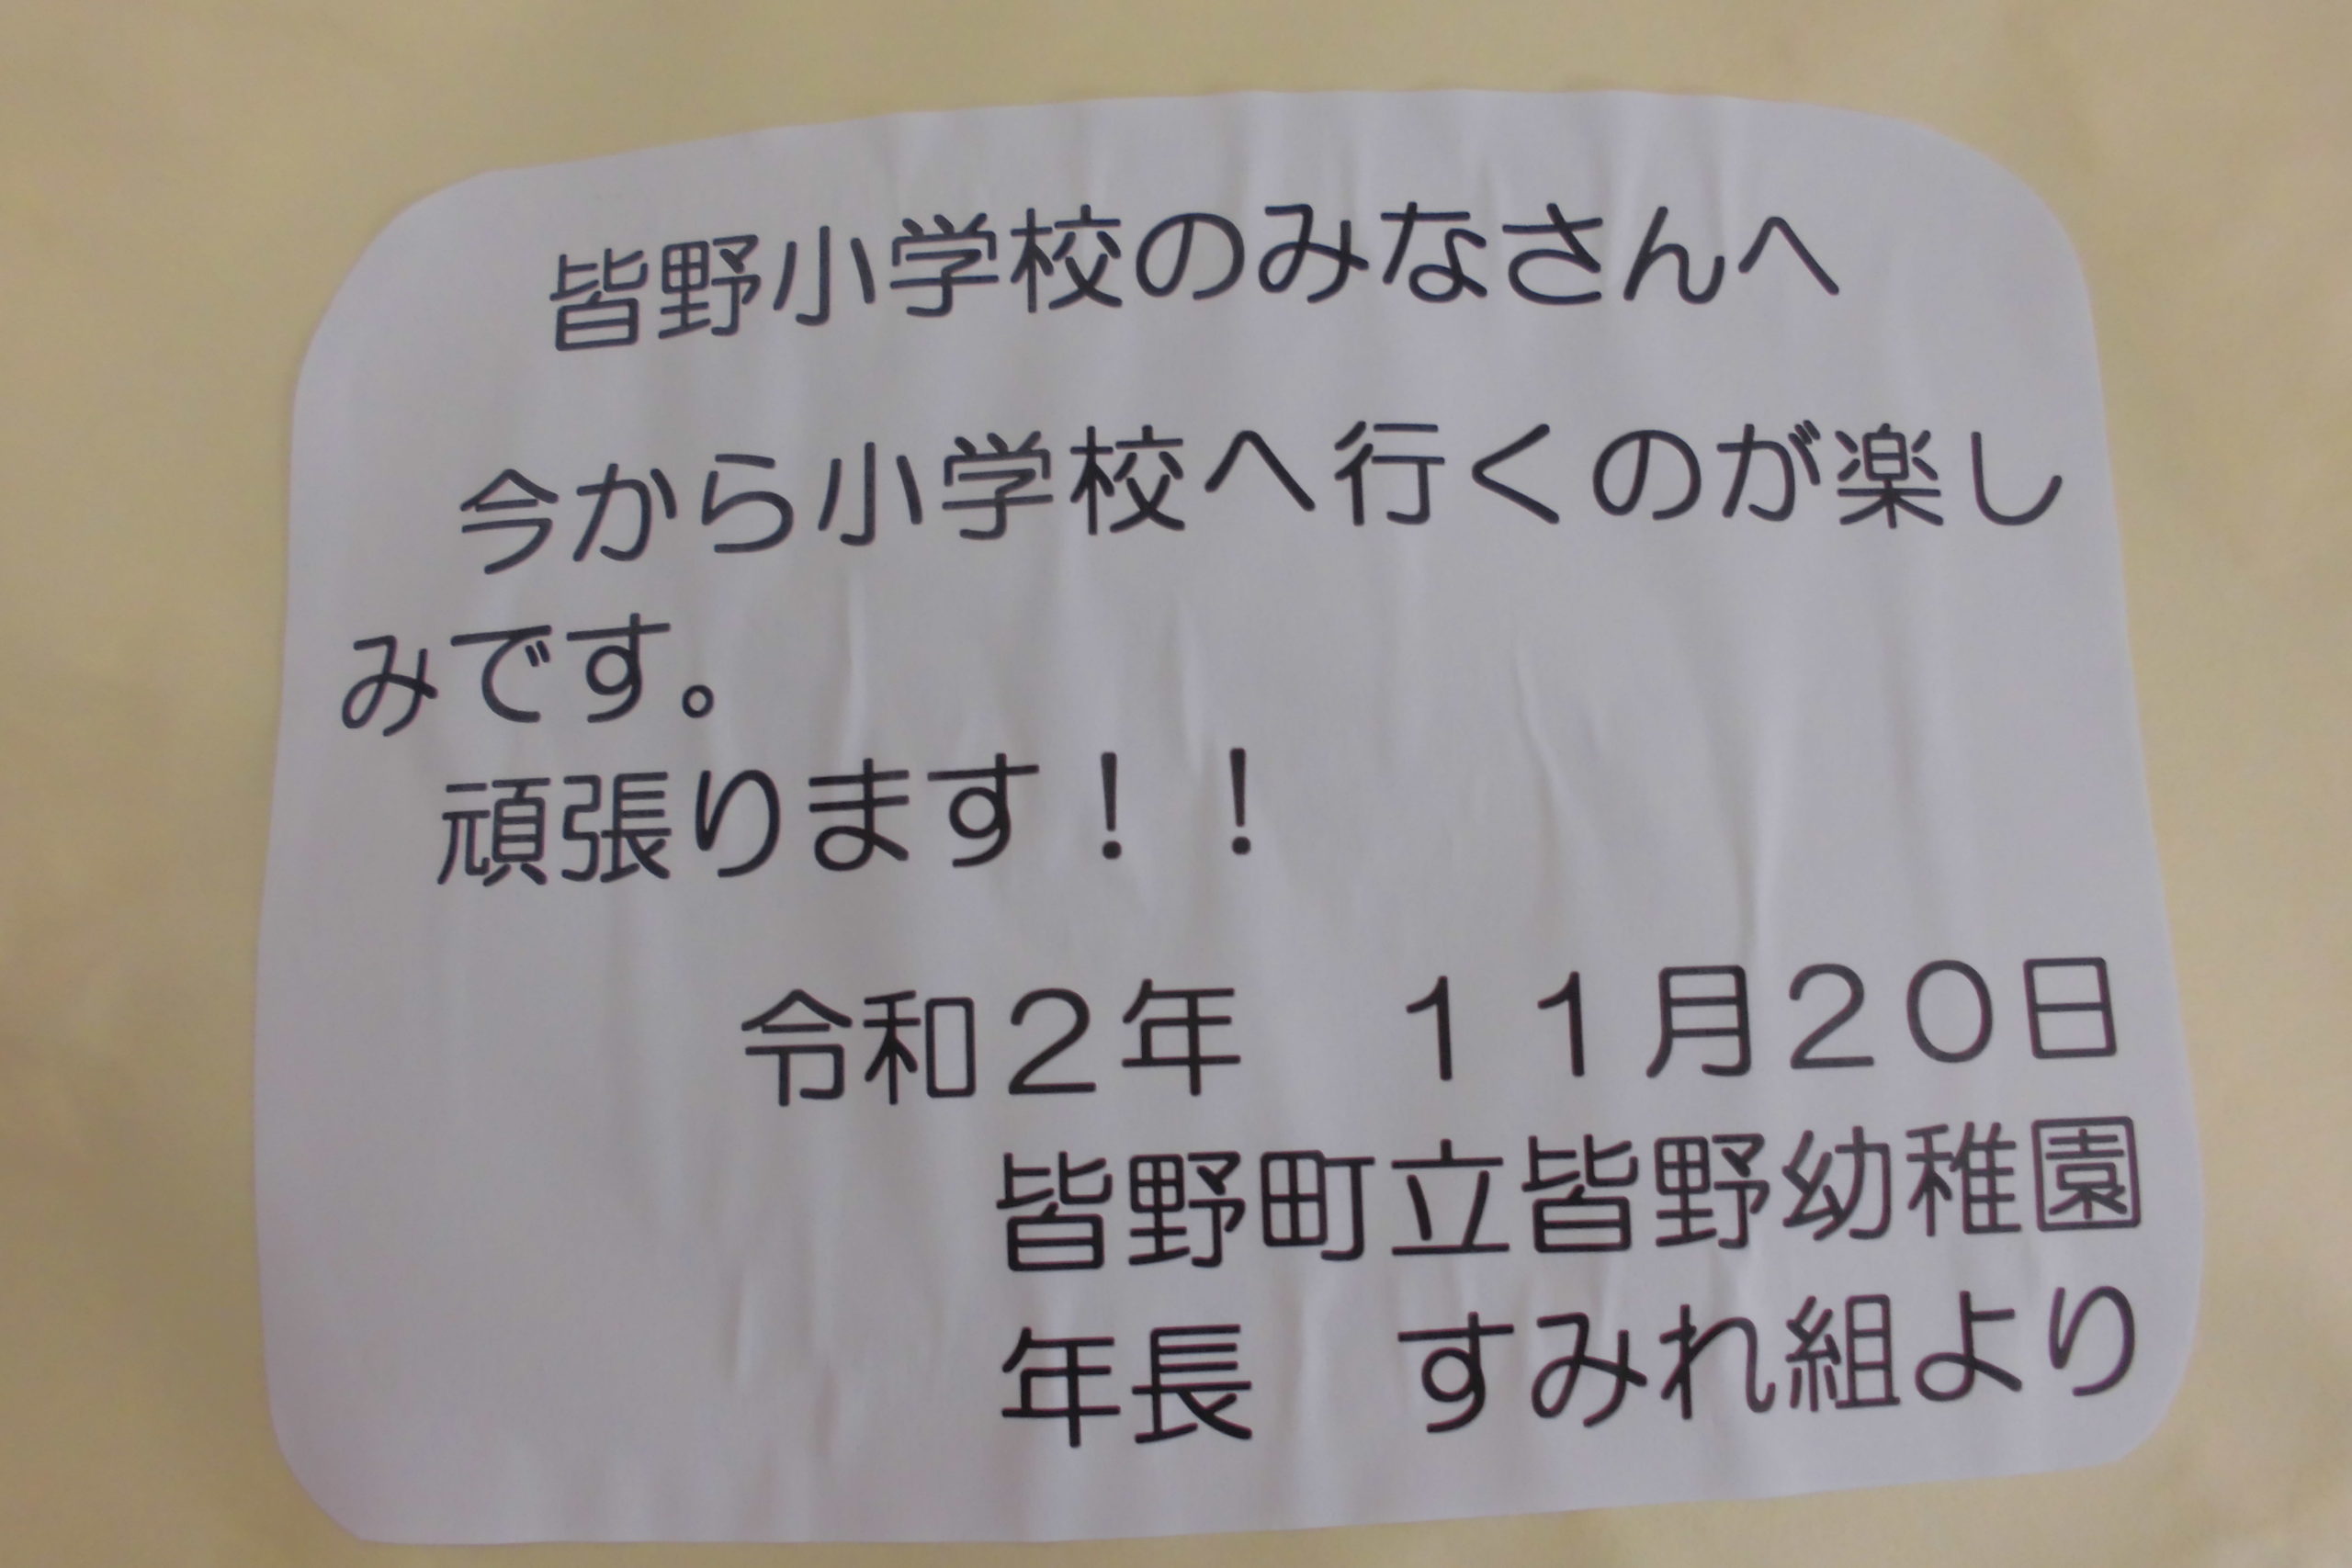 皆野小学校のみなさんへ
今から小学校へ行くのが楽し
みです。
頑張ります！！
令和２年　１１月２０日
皆野町立皆野幼稚園
年長　すみれ組より